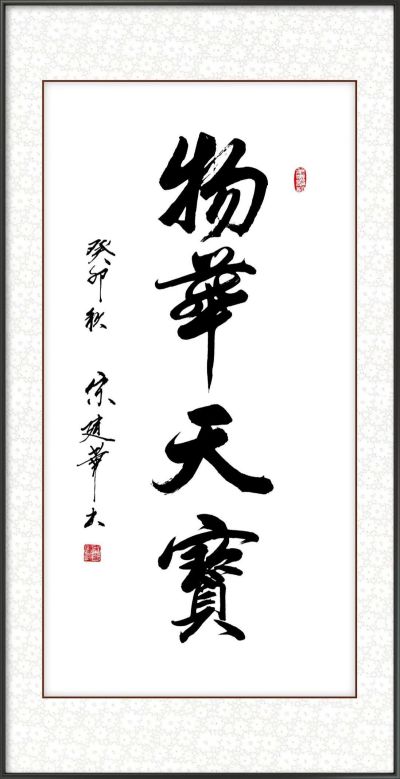 物華天寶
癸卯秋 宗建華書